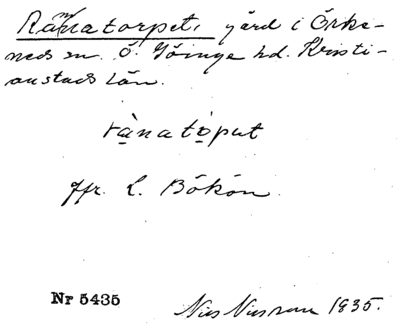 Ränatorpet, gård i Örke-
neds sn. Ö. Göinge hd. Kristi-
anstads län.
rànatòput
Jfr. L. Bökön
Nr 5435
Nils Nilsson 1935.